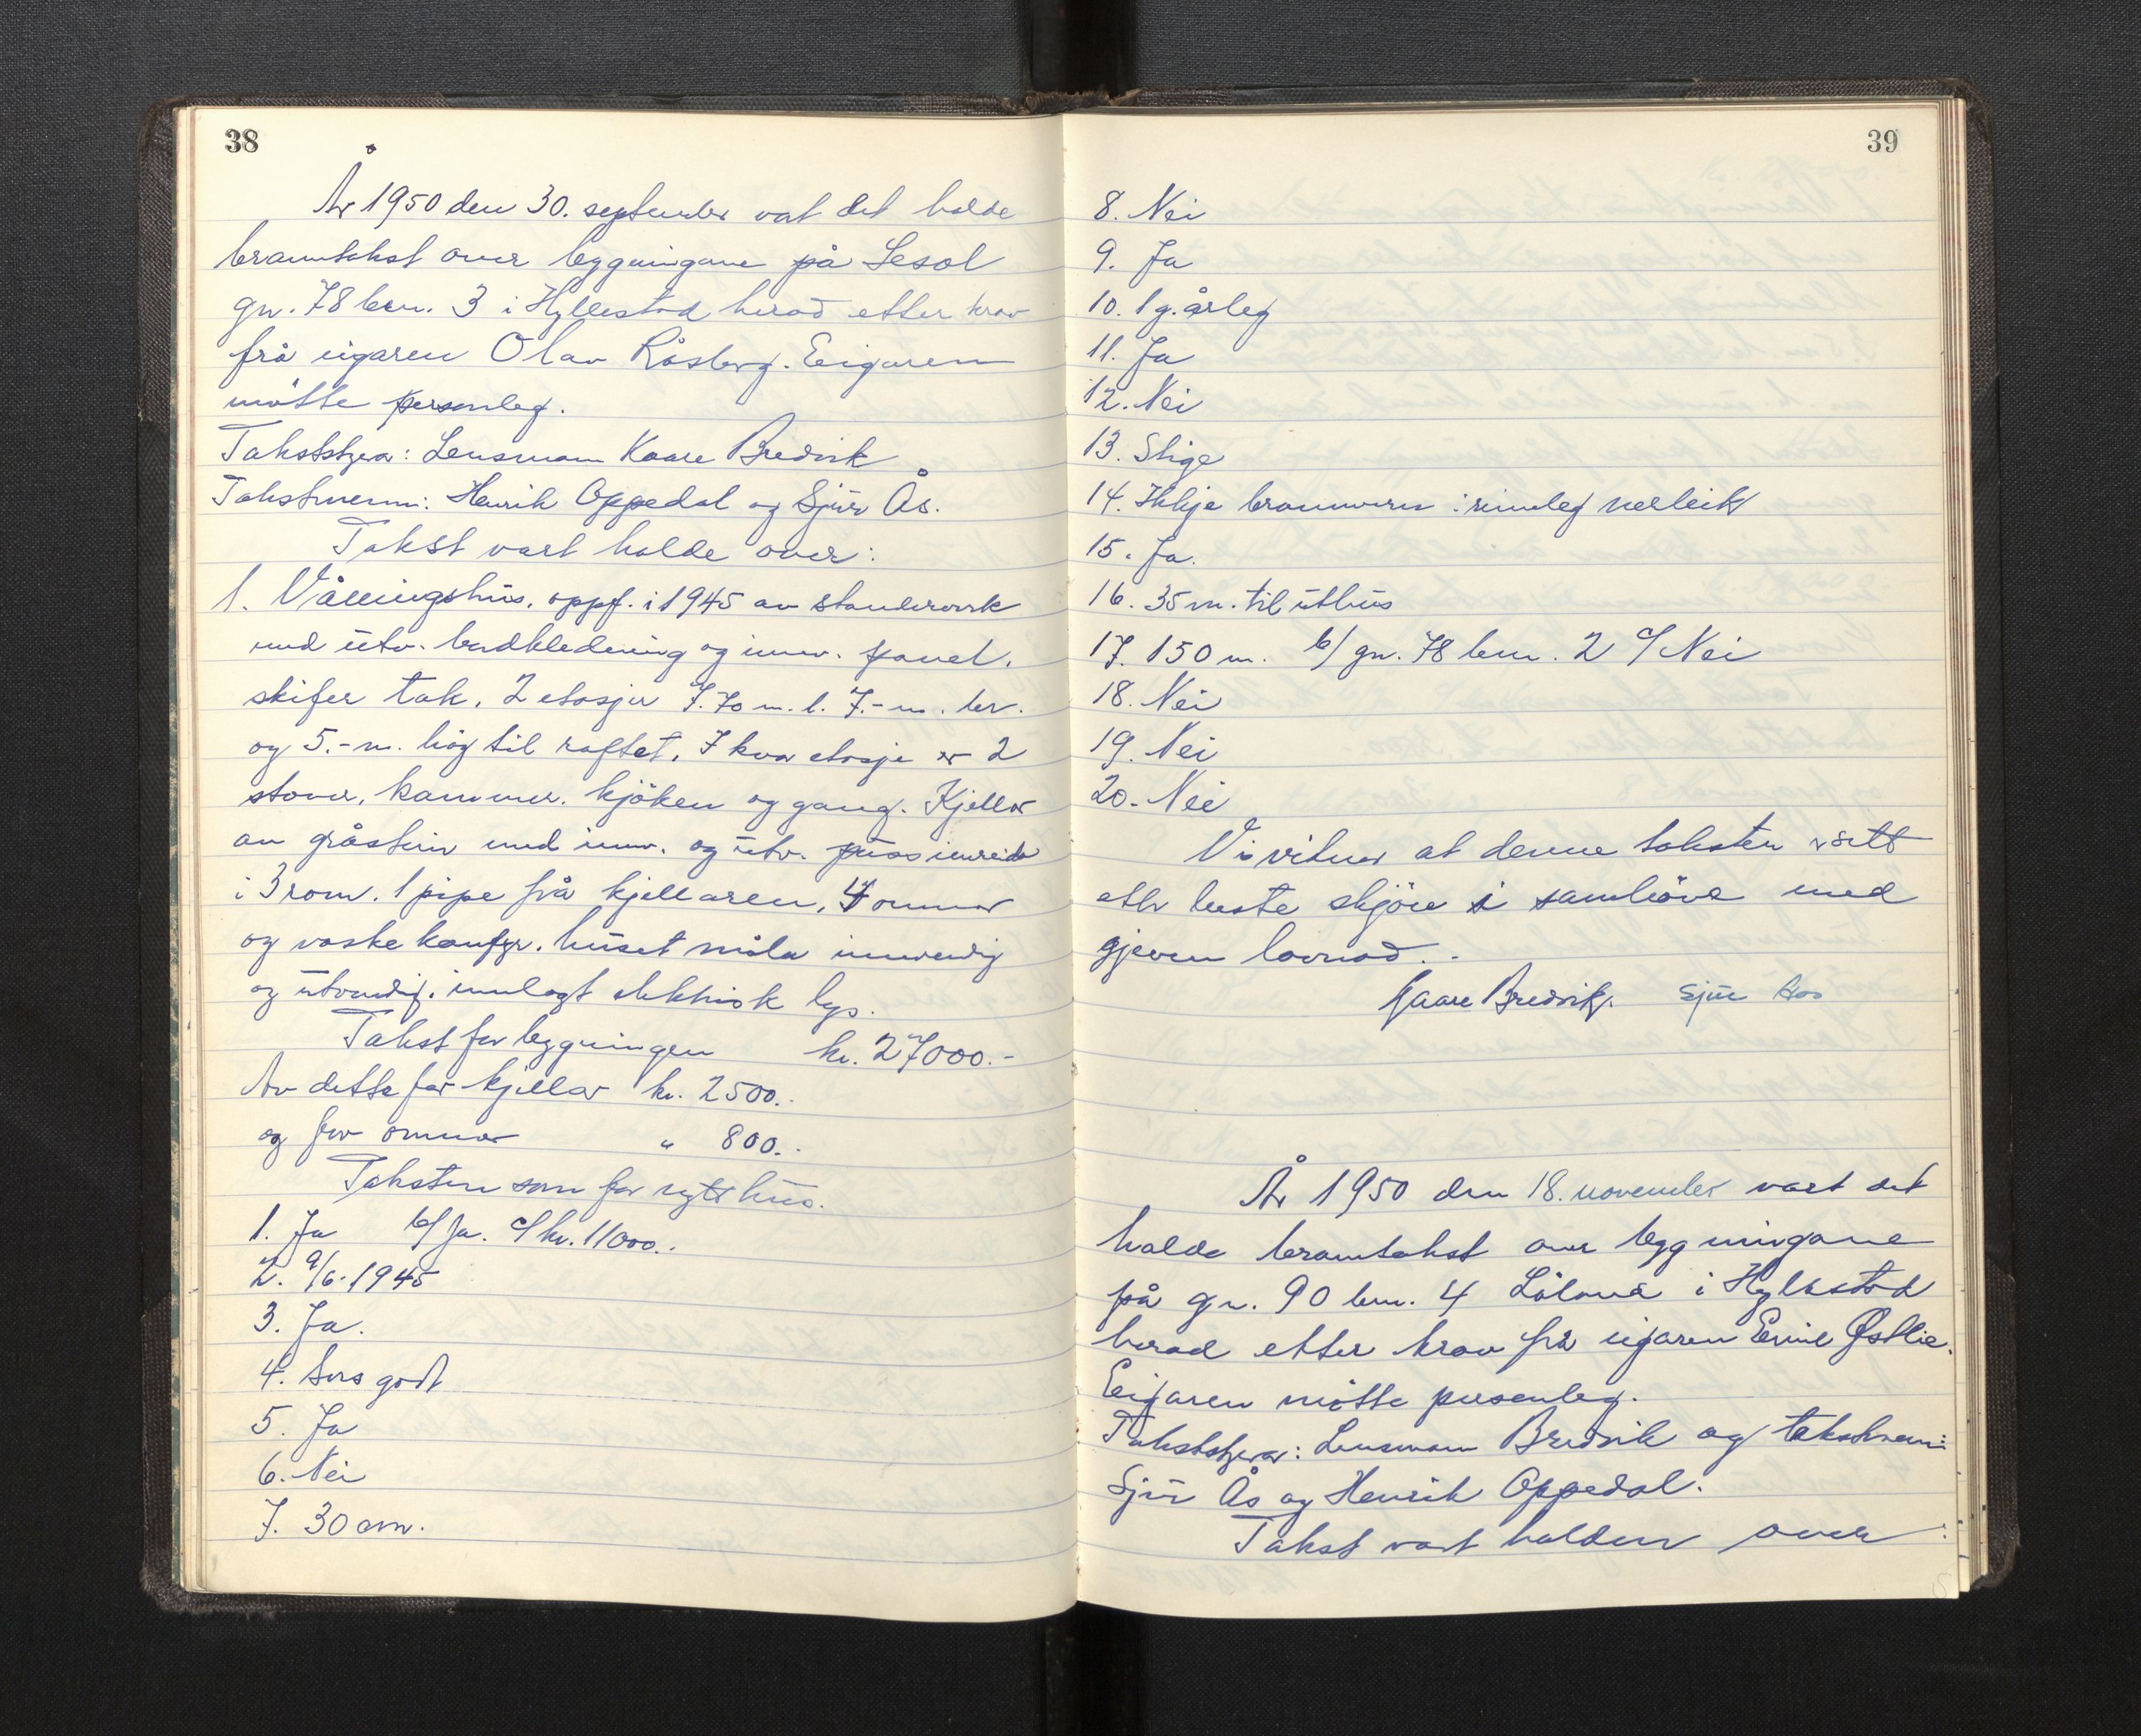 38
År 1950 den 30. september vart det halde
branntakst over bygningane på Lesol
gn. 78 bnr. 3 i Hyllestad herad etter krav
frå eigaren Olav Råsberg. Eigaren
møtte personleg.
Takststyrar: Lensmann Kaare Bredvik
Takstmenn: Henrik Oppedal og Sjur Ås.
Takst vart halde over:
1. Våningshus, oppf. i 1945 av standerverk
med utv. bordkledning og innv. panel,
skifer tak, 2 etasjer 7.70 m. l. 7.- m. br.
og 5.- m. høg til raftet. I kvar etasje er 2
stover, kammer, kjøken og gang. Kjellar
av gråstein med innv. og utv. puss innreidd
i 3 rom. 1 pipe frå kjellaren, 4 omnar
og vaske komfyr. huset måla innvendig
og utvendig. innlagt elektrisk lys.
Takst for bygningen kr. 27000.-
Av dette for kjellar kr. 2500.-
og for omnar " 800.-
Taksten som for nytt hus.
1. Ja b/ Ja. c/ kr. 11000.-
2. 9/6-1945
3. Ja.
4. Sers godt
5. Ja
6. Nei
7. 30 cm.
39
8. Nei
9. Ja
10. 1 g. årleg
11. Ja
12. Nei
13. Stige
14. Ikkje brannvern i rimeleg nerleik
15. Ja.
16. 35 m. til uthus
17. 150 m. b/ gn. 78 bnr. 2 c/ Nei
18. Nei
19. Nei
20. Nei
Vi vitnar at denne taksten er sett
etter beste skjøn i samhøve med
gjeven lovnad.-
Kaare Bredvik. Sjur Aas
År 1950 den 18. november vart det
halde branntakst over bygningane
på gn. 90 bnr. 4 i Hyllestad
herad etter krav frå eigaren Emil Østlie.
Eigaren møtte personleg.
Takststyrar: Lensmann Bredvik og takstmenn:
Sjur Ås og Henrik Oppedal.
Takst vart halden over: